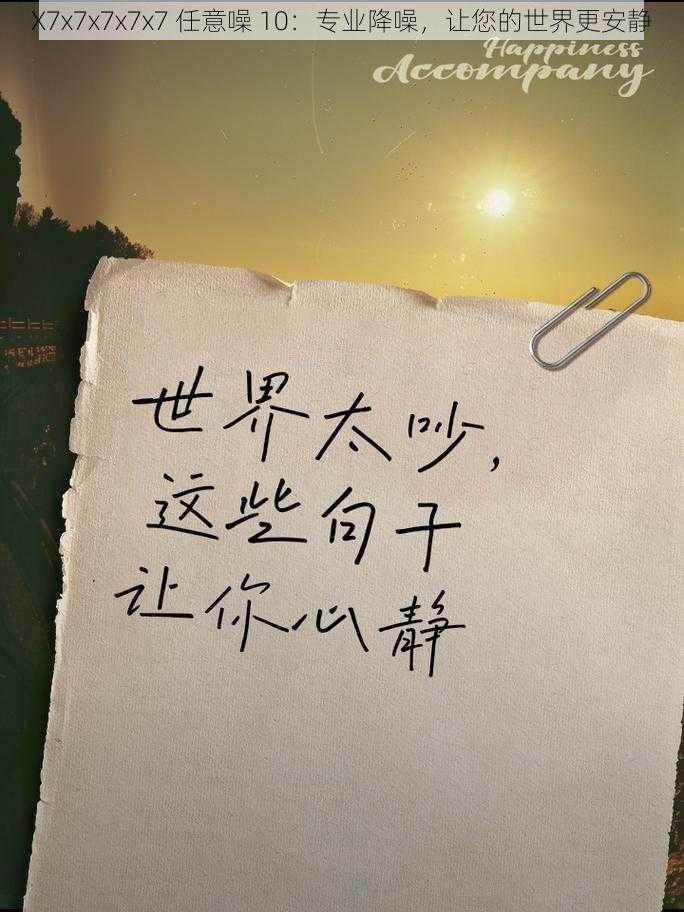 X7x7x7x7x7 任意噪 10：专业降噪，让您的世界更安静
Happiness
Accompany
世界太吵，
这些句子
让你心静